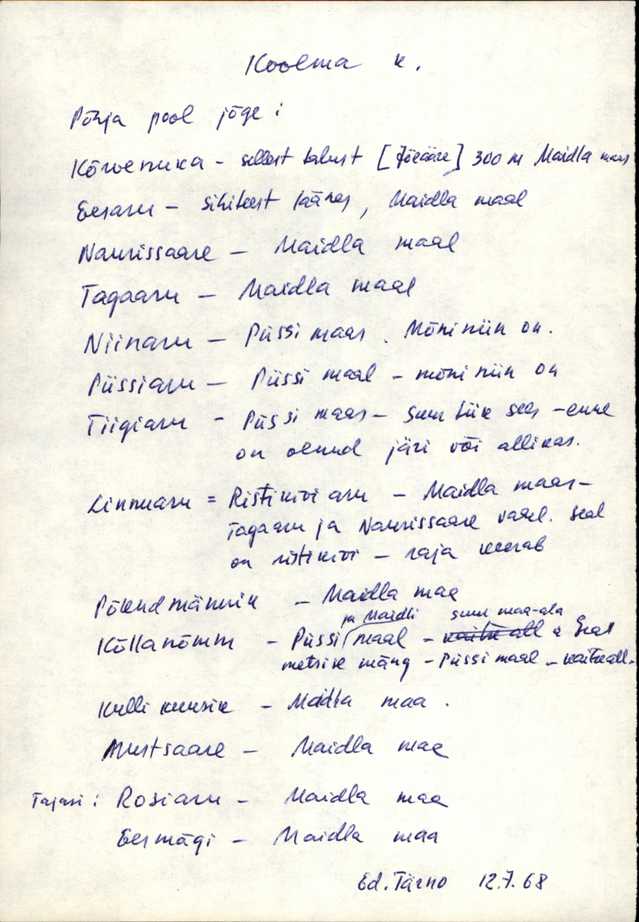 Koolma k.
Põhja pool jõge:
Kõrvenuka - sellest talust [Jõeääre] 300 m Maidla maas
Eesaru - Sihiteest lääne, Maidla maal
Naurissaare - Maidla maal
Tagaaru - Maidla maal
Niinaru - Püssi maas. Mõni niin on.
Püssiaru - Püssi maal - mõni niin on
Tiigiaru - Püssi maas - Suur tiik sees - enne
on olnud järv või allikas.
Linnuaru = Ristikivi aru - Maidla maas -
Tagaaru ja Naurissaare vahel. Seal
on ristikivi - raja keerab
Põlendmännik - Maidla maa
ja Maidli suur maa-ala
Kõllanõmm - Püssi maal - kaitse all Seal
metsise mäng - Püssi maal - kaitseall.
Kulli kuusik - Maidla maa.
Mustsaare - Maidla maa
Tajasi: Rosiaru - Maidla maa
Eesmägi - Maidla maa
Ed. Tärno 12.7.68